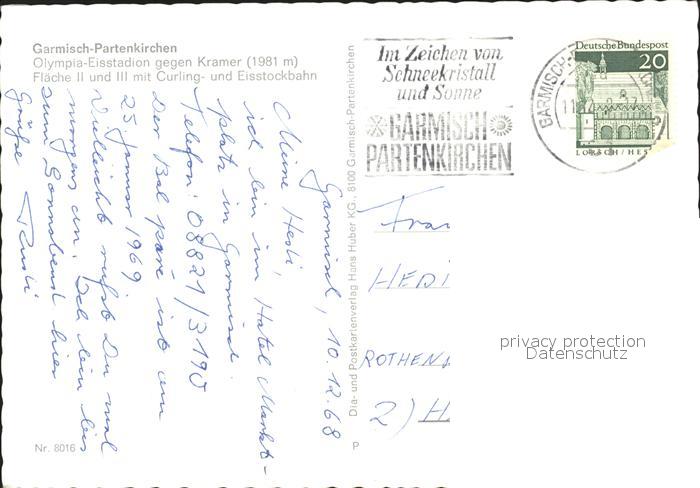 Garmisch-Partenkirchen
Olympia-Eisstadion gegen Kramer (1981 m)
Fläche II und III mit Curling- und Eisstockbahn
Garmisch, 10.12.68
Meine Hedi,
ich bin im Hotel Markt-
platz in Garmisch.
Telefon: 08821/3190
Der Bal paré ist am
25 Januar 1969
Vielleicht rufst Du mal
morgens an. Ich bin bis
zum Sonnabend hier
Grüße
Nr. 8016
P
Dia- und Postkartenverlag Hans Huber KG., 8100 Garmisch-Partenkirchen
Im Zeichen von
Schneekristall
und Sonne
GARMISCH
PARTENKIRCHEN
GARMISCH-
Deutsche Bundespost
20
LORSCH/HES
Frau
HEDI
ROTHENA
2) H.
privacy protection
Datenschutz